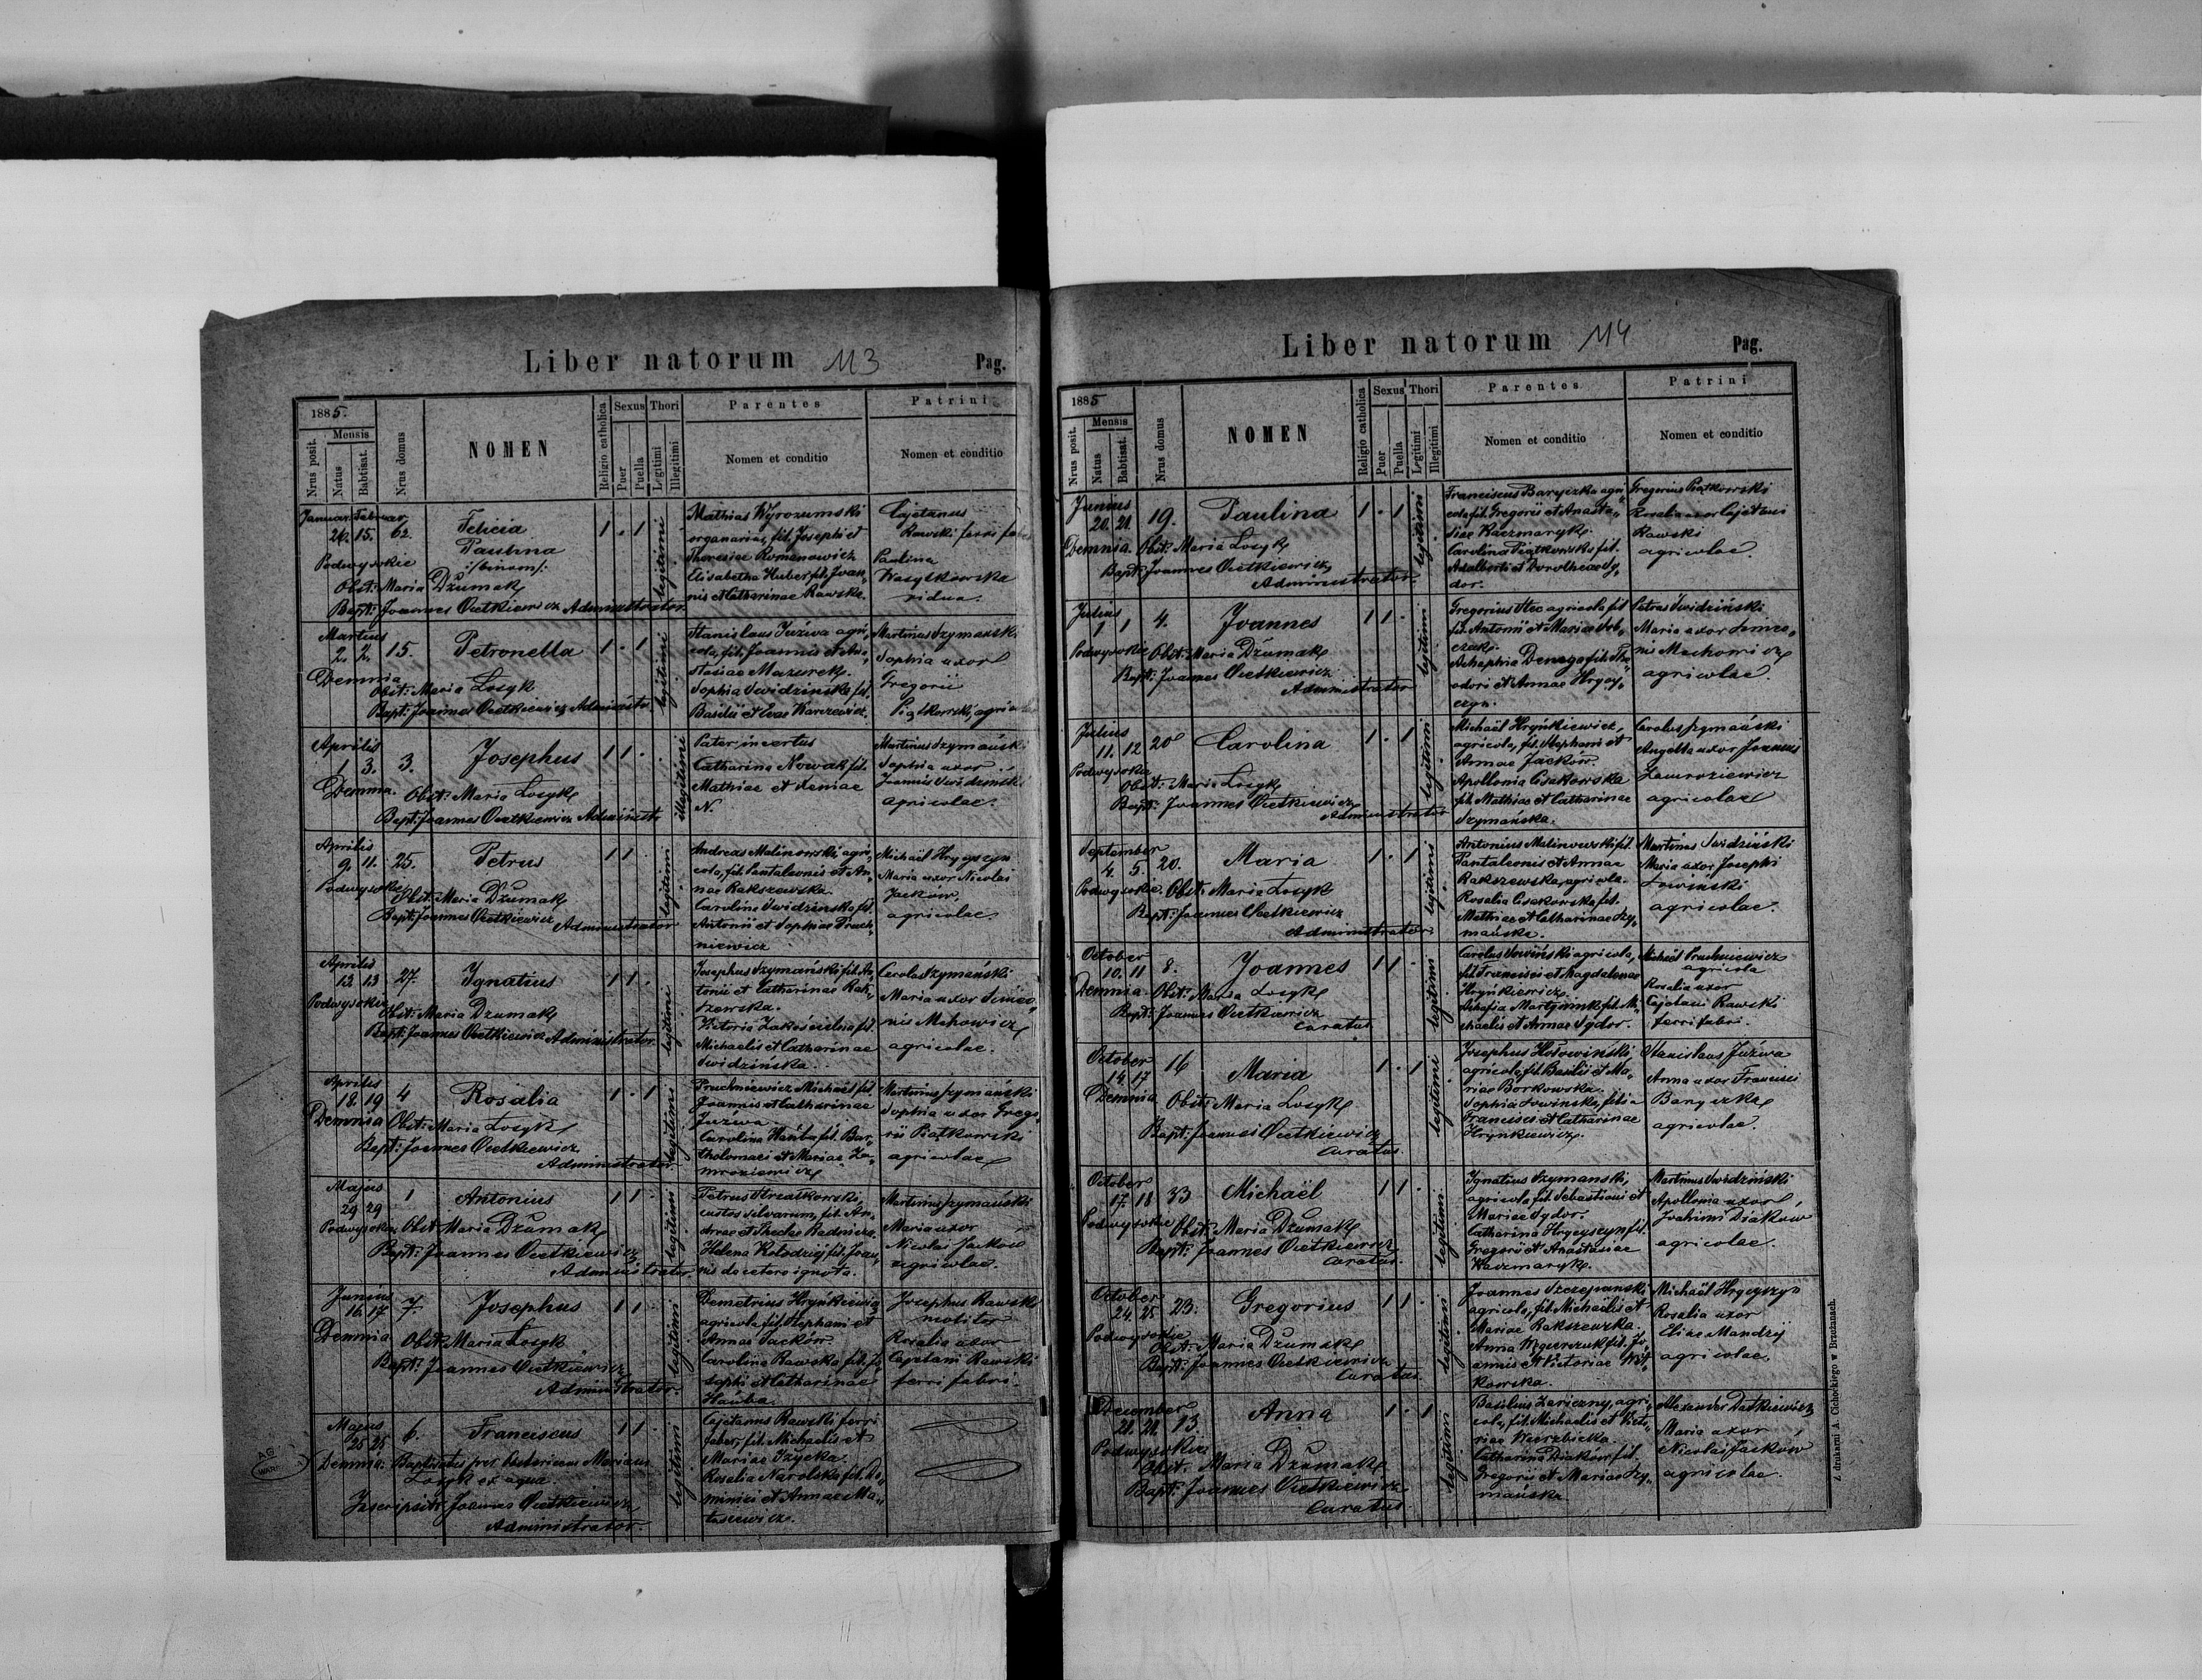 Liber natorum 113 Pag.
1885.
Nrus posit.
Mensis
Natus
Babtisat.
Nrus domus
NOMEN
Religio catholica
Sexus
Puer
Puella
Thori
Legitimi
Illegitimi
Parentes
Nomen et conditio
Patrini
Nomen et conditio
Januar. Februar.
26. 15. 62.
Podwysokie
Felicia
Paulina
/:binom:/
Obst: Maria Dżumak
Bapt: Joannes Ocetkiewicz Administrator
1 . 1
legitimi
Mathias Wyrozumski
organarius, fil. Josephi et
Theresiae Romanowicz
Elisabetha Huber fil. Joan„
nis et Catharinae Rawska.
Cajetanus
Rawski ferri
Paulina
Wasylkowska
vidua.
Martius
2. 2. 15. Petronella 1 . 1
Demnia
Obst: Maria Łosyk
Bapt: Joannes Ocetkiewicz Administr.
legitimi
Stanislaus Juźwa agri„
cola, fil. Joannis et Ana„
stasiae Mazurek.
Sophia Swidzińska fil.
Basilii et Evae Karczewicz.
Martinus Szymański
Sophia uxor
Gregorii
Piątkowski,
Aprilis
1 3. 3. Josephus 1 1 .
Demnia. Obst: Maria Łosyk
Bapt: Joannes Ocetkiewicz Administr
illegitimi
Pater incertus
Catharina Nowak fil.
Mathiae et Xeniae
N.
Martinus Szymański
Sophia uxor
Joannis Swidziński
agricolae.
Aprilis
9. 11. 25. Petrus 1 1
Podwysokie
Obst: Maria Dżumak
Bapt: Joannes Ocetkiewicz
Administrator
legitimi
Andreas Malinowski agri„
cola, fil. Pantaleonis et An„
nae Rakszewska
Carolina Swidzińska fil.
Antonii et Sophiae Pruch„
niewicz
Michaël Hrycyszyn
Maria uxor Nicolai
Jacków,
agricolae
Aprilis
12 13 27. Ignatius 1 1 .
Podwysokie
Obst: Maria Dżumak
Bapt: Joannes Ocetkiewicz Administrator.
legitimi
Josephus Szymański fil. An„
tonii et Catharinae Rak„
szewska.
Michaelis et Catharinae
Swidzińska.
Carolus Szymański
Maria uxor Simeo„
nis Mehowicz
agricolae.
Aprilis
18. 19 4 Rosalia 1 . 1
Demnia Obst: Maria Łosyk
Bapt: Joannes Ocetkiewicz
Administrator
legitimi
Pruchniewicz Michaël fil.
Joannis et Catharinae
Juźwa.
Carolina Hańba fil. Bar„
tholomaei et Mariae Za„
mroziewicz
Martinus Szymański
Sophia uxor Grego„
rii Piątkowski
agricolae
Majus
29 29 1 Antonius 1 1 .
Podwysokie Obst: Maria Dżumak
Bapt: Joannes Ocetkiewicz
Administrator.
legitimi
Petrus
custos silvarum, fil. An„
Helena Kołodzij fil. Joan„
nis de cetero ignota.
Martinus Szymański
Maria uxor
Nicolai Jacków
agricolae.
Junius
16. 17 7. Josephus 1 1 .
Demnia
Obst: Maria Łosyk
Bapt: Joannes Ocetkiewicz
Administrator.
legitimi
Demetrius Hryńkiewicz
agricola fil. Stephani et
Annae Jacków
Carolina Rawska fil. Jo„
sephi et Catharinae
Hańba.
Josephus Rawski
molitor
Rosalia uxor
Cajetani Rawski
ferri fabri.
Majus
25 25 6. Franciscus 1 1
Demnia. Baptisatus per obstetricem Mariam
Łosyk ex aqua
Inscripsit Joannes Ocetkiewicz
Administrator.
legitimi
Cajetanus Rawski ferri
faber, fil. Michaelis et
Mariae Iżycka.
Rosalia Narolska fil. Do„
minici et Annae Ma„
Liber natorum 114 Pag.
1885
Nrus posit.
Mensis
Natus
Babtisat.
Nrus domus
NOMEN
Religio catholica
Sexus
Puer
Puella
Thori
Legitimi
Illegitimi
Parentes
Nomen et conditio
Patrini
Nomen et conditio
Junius
20. 21. 19. Paulina 1 . 1
Demnia. Obst: Maria Łosyk
Bapt: Joannes Ocetkiewicz
Administrator.
legitimi
Franciscus Baryczka agri„
cola fil. Gregorii et Anasta„
siae Kaczmaryk.
Carolina Piątkowska fil.
Adalberti et Dorotheae Sy„
dor.
Gregorius Piątkowski
Rosalia uxor Cajetani
Rawski
agricolae.
Julius
1 1 4. Joannes 1 1 .
Podwysokie Obst: Maria Dżumak
Bapt: Joannes Ocetkiewicz
Administrator
legitimi
Gregorius Stec agricola fil
fil. Antonii et Mariae
Petrus Swidziński
Maria uxor Simeo„
nis Mechowicz
agricolae.
Julius
11. 12 20 Carolina 1 . 1
Podwysokie
Obst: Maria Łosyk
Bapt: Joannes Ocetkiewicz
Administrator
legitimi
Michaël Hryńkiewicz,
agricola, fil. Stephani et
Annae Jacków
Apollonia Cisakowska
fil. Mathiae et Catharinae
Szymańska.
Carolus Szymański
Angella uxor Joannis
Zamroziewicz
agricolae
September
4. 5. 20. Maria 1 . 1
Podwysokie. Obst: Maria Łosyk
Bapt: Joannes Ocetkiewicz
Administrator.
legitimi
Antonius Malinowski fil.
Pantaleonis et Annae
Rakszewska, agricola.
Rosalia Cisakowska fil.
Mathiae et Catharinae Szy„
mańska.
Martinus Swidziński
Maria uxor Josephi
Łowiński
agricolae.
October
10. 11 8. Joannes 1 1 .
Demnia. Obst: Maria Łosyk
Bapt: Joannes Ocetkiewicz
Curatus
legitimi
Carolus Łowiński agricola,
fil. Francisci et Magdalenae
Hryńkiewicz
fil. Mi„
chaelis et Annae Sydor.
Michaël Pruchniewicz
agricola
Rosalia uxor
Cajetani Rawski
ferri fabri.
October
14 17 16 Maria 1 . 1
Demnia Obst: Maria Łosyk
Bapt: Joannes Ocetkiewicz
Curatus.
legitimi
Josephus Hołowiński,
agricola, fil. Basilii et Ma„
riae Borkowska.
Sophia Łowińska, filia
Francisci et Catharinae
Hrynkiewicz.
Stanislaus Juźwa
Anna uxor Francisci
Baryczka
agricolae.
October
17. 18 33 Michaël 1 1 .
Podwysokie Obst: Maria Dżumak
Bapt: Joannes Ocetkiewicz
Curatus.
legitimi
Ignatius Szymanski,
agricola, fil. Sebastiani et
Mariae Sydor.
Catharina Hrycyszyn fil.
Gregorii et Anastasiae
Kaczmaryk.
Martinus Swidziński
Apollonia uxor
Joachimi Diaków
agricolae.
October
24. 25 23. Gregorius 1 1 .
Podwysokie
Obst: Maria Dżumak
Bapt: Joannes Ocetkiewicz
Curatus.
legitimi
Joannes Szczepanski
agricola, fil. Michaelis et
Mariae Rakszewska.
Anna fil. Jo„
annis et Victoriae Wit„
kowska.
Michaël Hrycyszyn
Rosalia uxor
Eliae Mandzij
agricolae.
December
20. 20. 13 Anna 1 . 1
Podwysokie
Obst: Maria Dżumak
Bapt: Joannes Ocetkiewicz
Curatus
legitimi
Basilius Zariczny, agri„
cola, fil. Michaelis et Victo„
riae Wierzbicka.
Catharina Diaków fil.
Gregorii et Mariae Szy„
mańska
Alexander Datkiewicz
Maria uxor
Nicolai Jacków
agricolae.
Z drukarni A. Cichockiego w Brzeżanach.